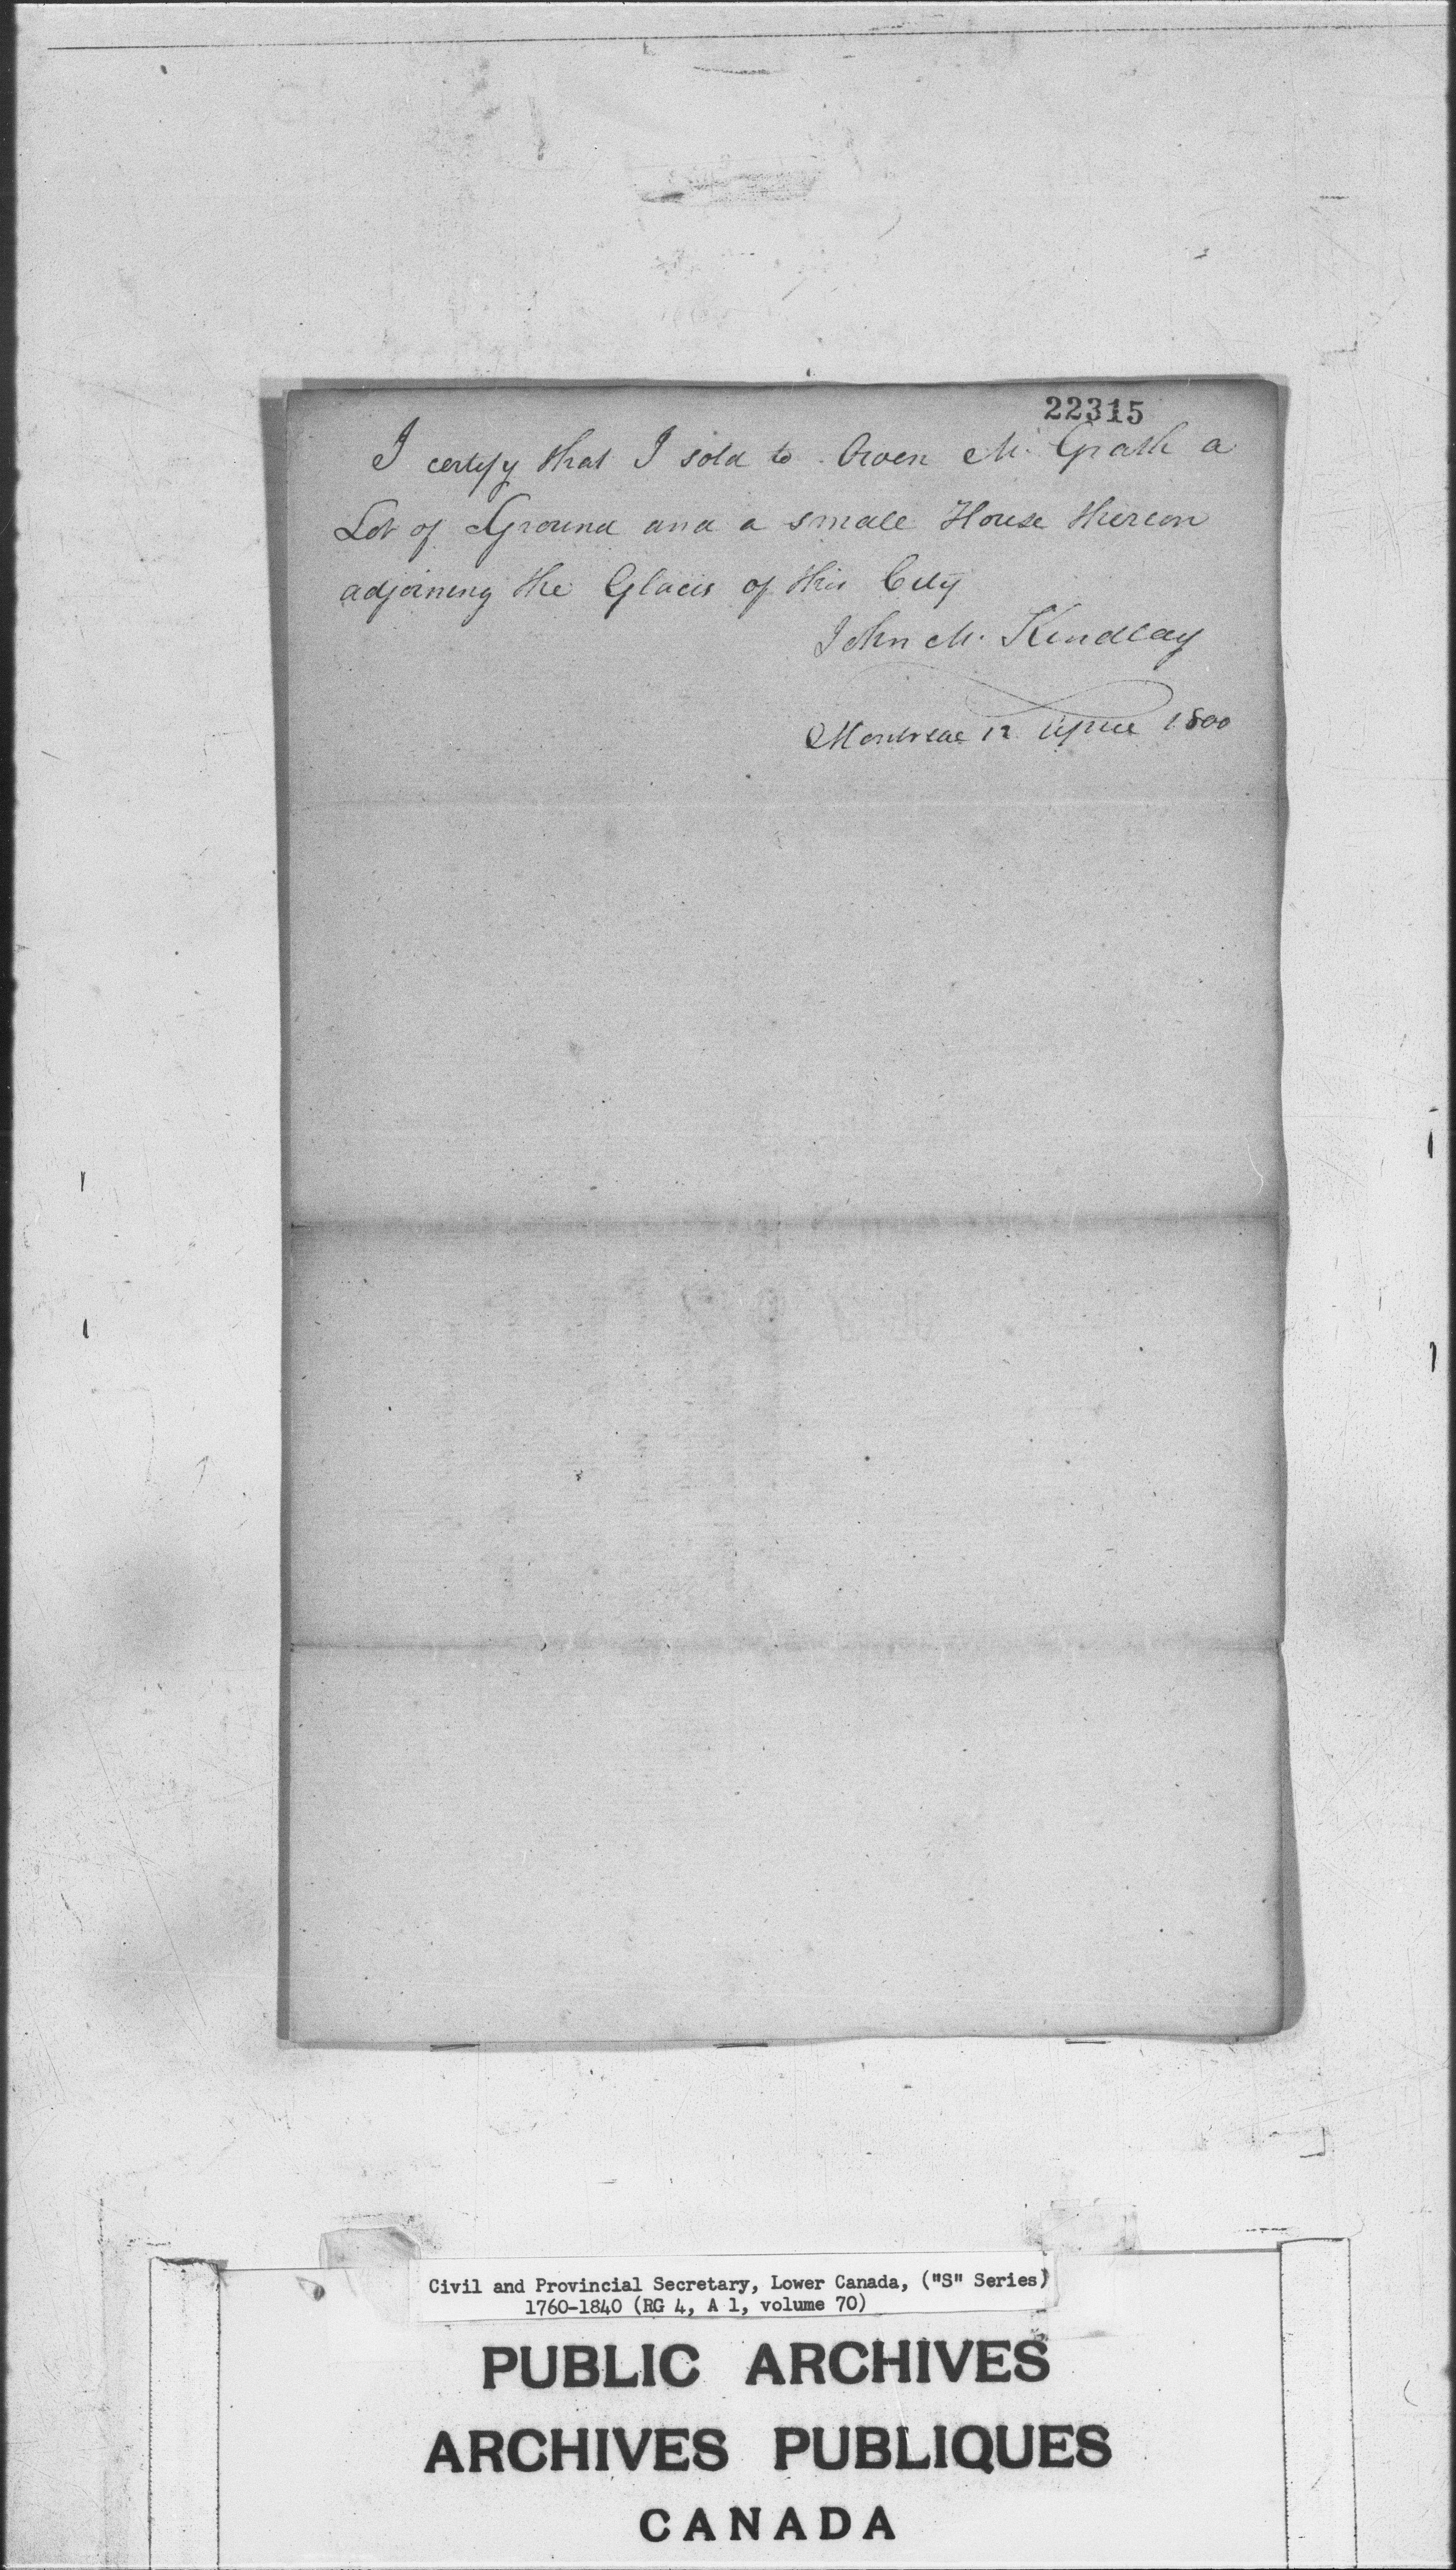 22315
I certify that I sold to Owen Mc. Grath a
Lot of Ground and a small House thereon
adjoining the Glacis of this City
John Mc. Kindlay
Montreal 12 April 1800
Civil and Provincial Secretary, Lower Canada, ("S" Series)
1760-1840 (RG 4, A 1, volume 70)
PUBLIC ARCHIVES
ARCHIVES PUBLIQUES
CANADA